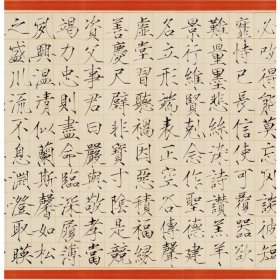 必改得能莫忘罔談彼短
靡恃己長信使可覆器欲
難量墨悲絲染詩讚羔羊
景行維賢剋念作聖德建
名立形端表正空谷傳聲
虛堂習聽禍因惡積福緣
善慶尺璧非寶寸陰是競
資父事君曰嚴與敬孝當
竭力忠則盡命臨深履薄
夙興溫凊似蘭斯馨如松
之盛川流不息淵澄取映